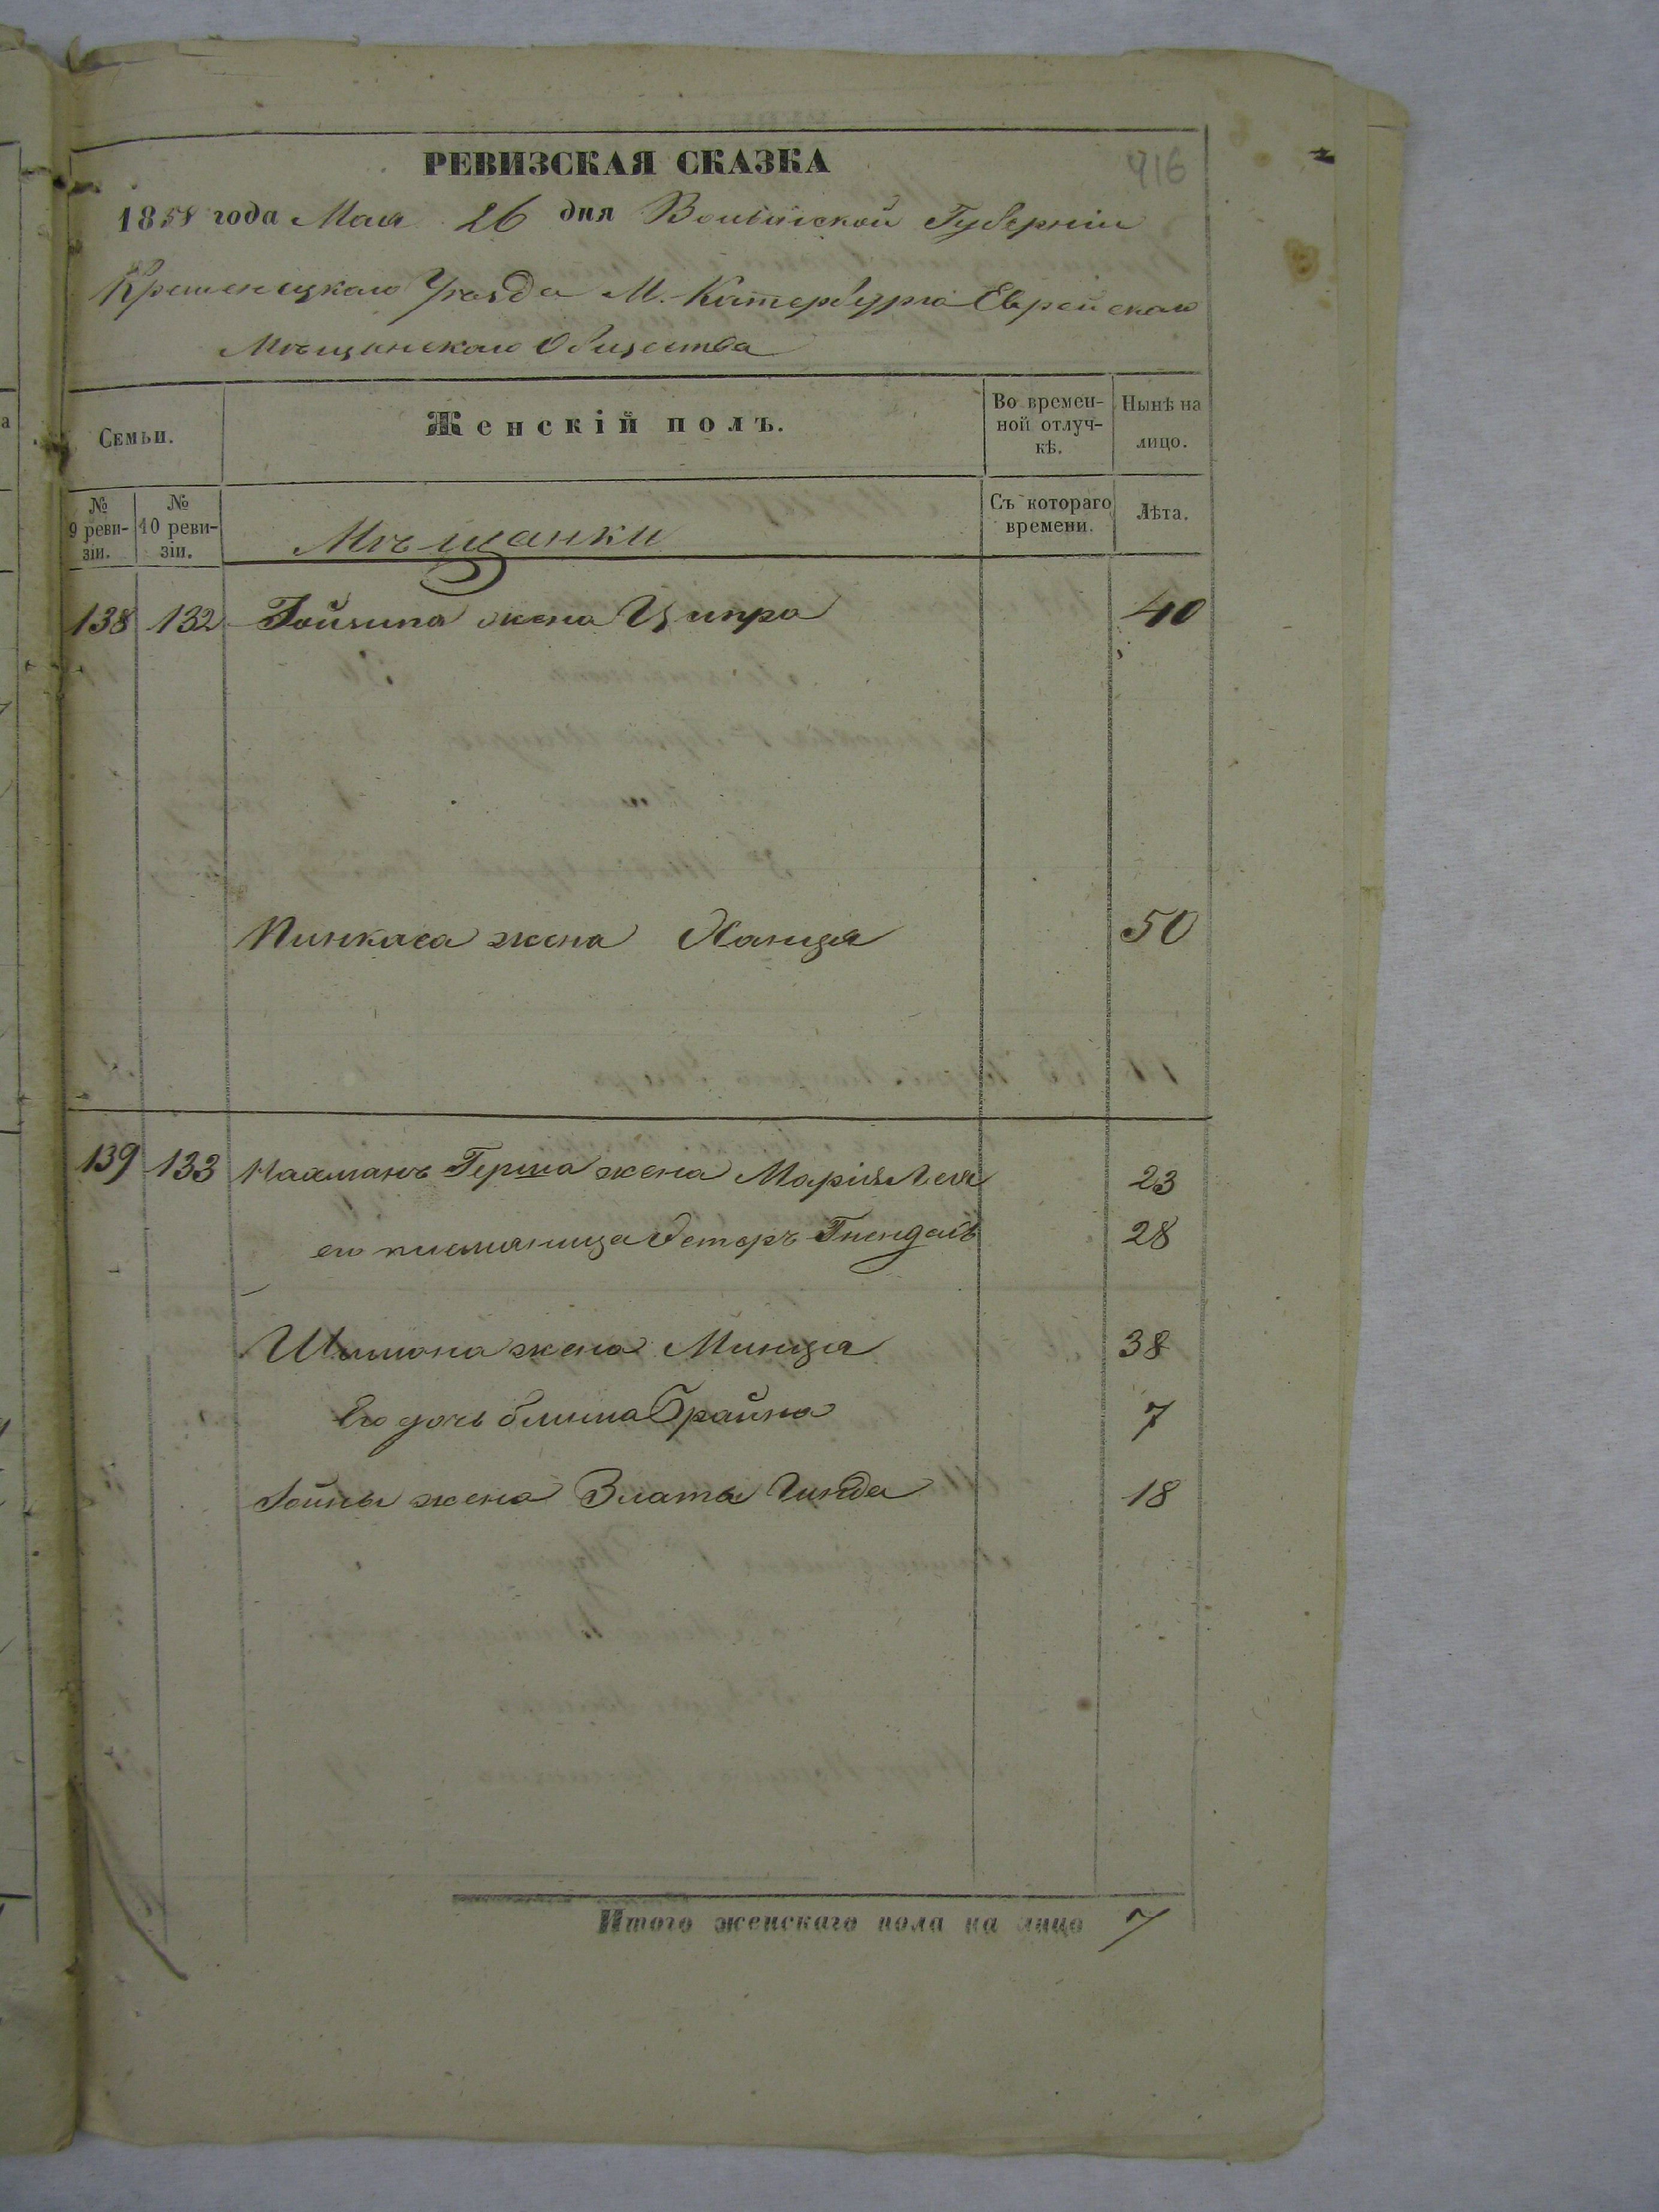 РЕВИЗСКАЯ СКАЗКА
416
1858 года Мая 26 дня Волынской Губерніи
Кременецкаго Уѣзда М. Катербурга Еврейскаго
Мѣщанскаго Общества
Семьи.
Женскій полъ.
Во времен-
ной отлуч-
кѣ.
Нынѣ на
лицо.
№
9 реви-
зіи.
№
10 реви-
зіи.
Мѣщанки
Съ котораго
времени.
Лѣта.
138 132 жена Ципра 40
Пинкаса жена Ханця 50
139 133 Нахманъ Герша жена Марія Лея 23
его племяница 28
жена Минця 38
Его дочь Брайна 7
жена Злата Гинда 18
Итого женскаго пола на лицо 7